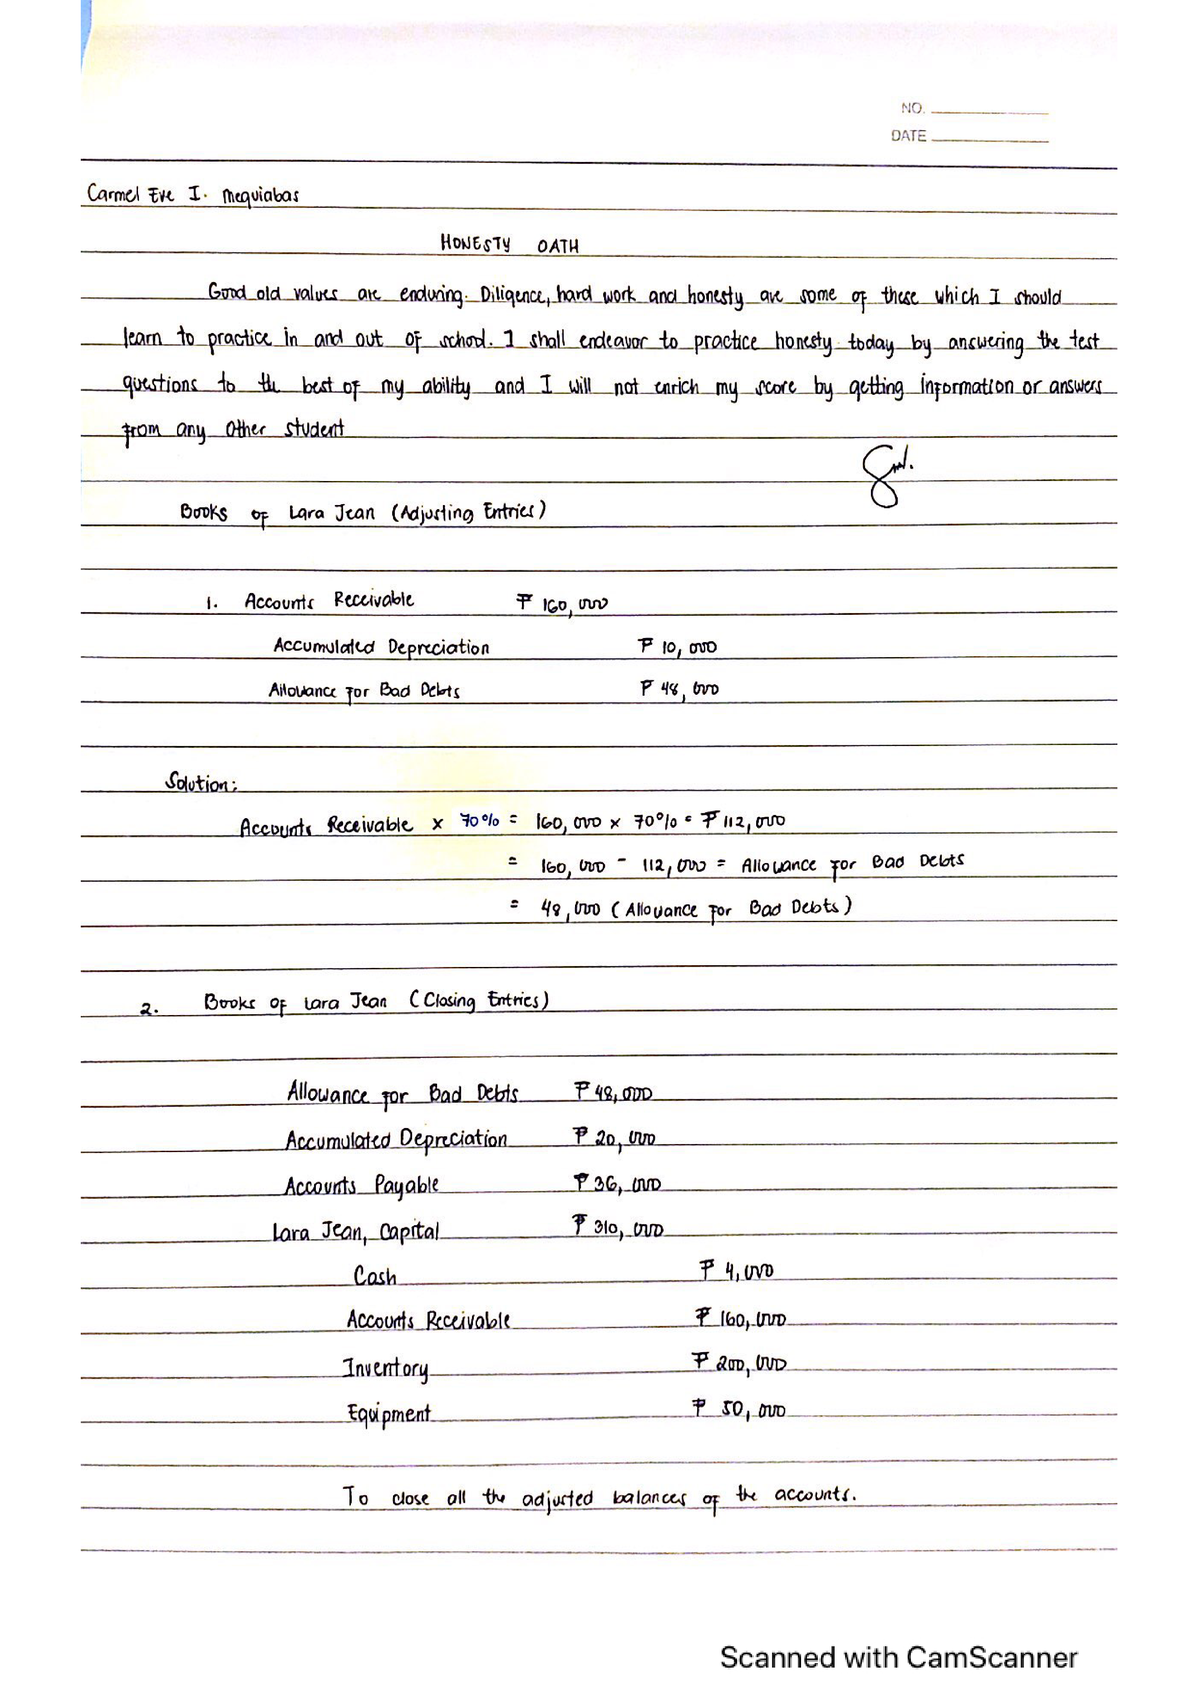 NO.
DATE
Carmel Eve I. Mequiabas
HONESTY OATH
Good old values are enduring. Diligence, hard work and honesty are some of these which I should
learn to practice in and out of school. I shall endeavor to practice honesty today by answering the test
questions to the best of my ability and I will not enrich my score by getting information or answers
from any other student
Books of Lara Jean (Adjusting Entries)
1. Accounts Receivable ₱ 160,000
Accumulated Depreciation ₱ 10,000
Allowance for Bad Debts ₱ 48,000
Solution:
Accounts Receivable x 70% = 160,000 x 70% = ₱ 112,000
= 160,000 - 112,000 = Allowance for Bad Debts
= 48,000 (Allowance for Bad Debts)
2. Books of Lara Jean (Closing Entries)
Allowance for Bad Debts ₱ 48,000
Accumulated Depreciation ₱ 20,000
Accounts Payable ₱ 36,000
Lara Jean, Capital ₱ 310,000
Cash ₱ 4,000
Accounts Receivable ₱ 160,000
Inventory ₱ 200,000
Equipment ₱ 50,000
To close all the adjusted balances of the accounts.
Scanned with CamScanner